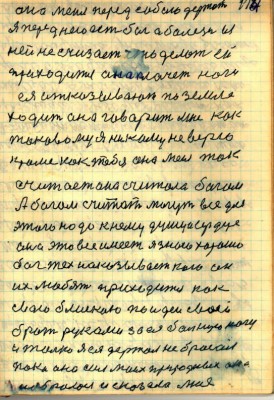 она меня перед собою держит
я перед нею
ней не считает что делать ей
приходится она плачет ноги
ея отказывают по земле
ходит она говорит мне как
таковому я никому не верю
кроме как тебя она меня так
считает она считала богом
А богом считать могут все для
этого надо к нему душу сердце
она это все имеет я знаю хорошо
бог тех наказывает кого он
их любят приходится как
свою близкою подойти своей
брат руками за ея больную ногу
и только я ся держал не бросал
пока она сил моих природных она
набралась и сказала мне